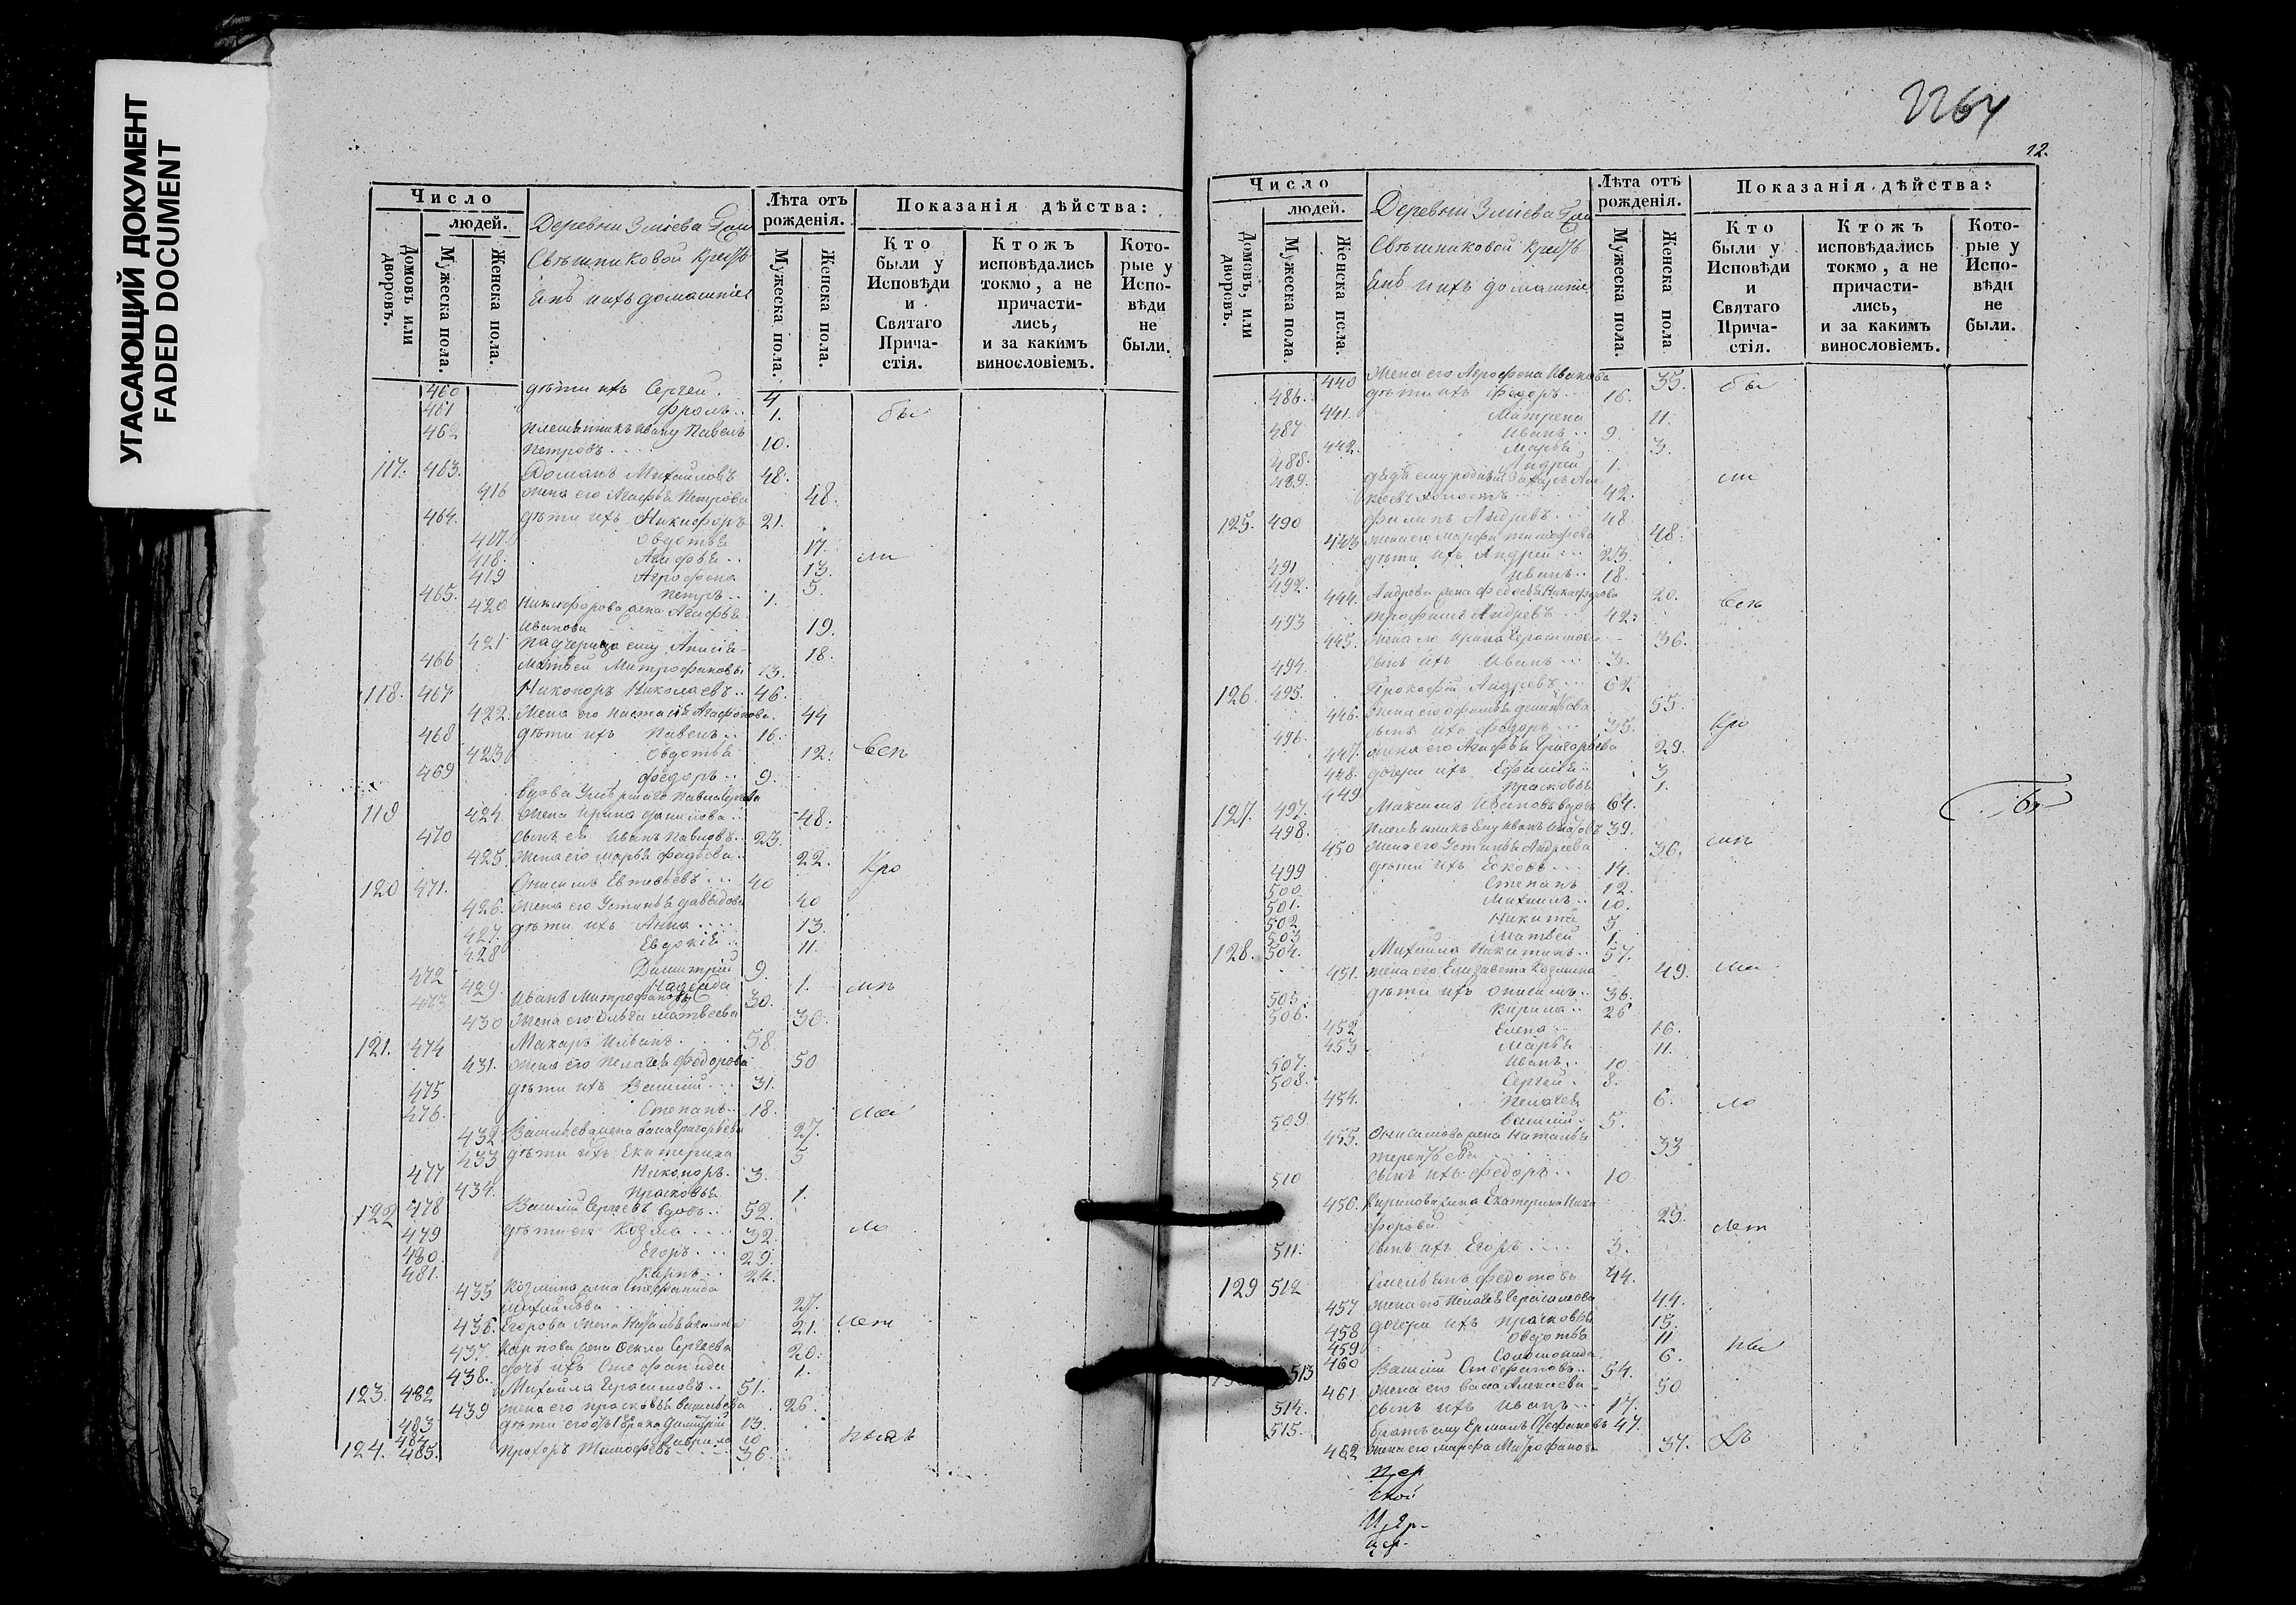 УГАСАЮЩИЙ ДОКУМЕНТ
FADED DOCUMENT
Число
людей.
Домовъ или дворовъ.
Мужеска пола.
Женска пола.
Деревни Змієва
Свѣшниковой
ихъ домашніе
Лѣта отъ рожденія.
Мужеска пола.
Женска пола.
Показанія дѣйства:
Кто были у Исповѣди и Святаго Прича-стія.
Ктожъ исповѣдались токмо, а не причасти-лись, и за какимъ винословіемъ.
Кото-рые у Испо-вѣди не были.
460 дѣти ихъ Сергей. 4
461 Фролъ.. 1. бы
462 племянникъ Ивану Павелъ
Петровъ.... 10.
117. 463. Михайловъ 48.
416 жена его Агафья Петрова 48.
464. дѣти ихъ Никифоръ 21.
417. Овдотья 17.
418. Агафья.. 13. ли
419 Агрофена 5.
465. Петръ.. 1.
420 Никифорова жена Агафья
Иванова 19.
421 падчерица ему Анисія 18.
466 Матвей Митрофановъ 13.
118. 467 Никоноръ Николаевъ.. 46.
422. жена его Настасія Агафонова. 44
468 дѣти ихъ Павелъ.. 16.
423 Овдотья 12. Всѣ
469 Федоръ.. 9.
вдова умершаго Павла
119 424 жена Ирина Данилова.. 48.
470 сынъ ея Иванъ Павловъ.. 23.
425. жена его Марья Фадѣева.. 22. Кро
120 471. Онисимъ Евтиѣевъ... 40
426. жена его Устинья Давыдова 40
427. дѣти ихъ Анна.... 13.
428 Евдокія.. 11.
472 Димитрій 9.
429. 1. мѣ
473 Иванъ Митрофановъ 30.
430 жена его Ольга Матвеева 30.
121. 474 Макаръ 58
431. жена его Пелагея Федорова 50
475 дѣти ихъ Василій... 31.
476. Степанъ.. 18. ма
432 Васильева жена Григорьева 27.
433 дѣти ихъ Екатерина 5
477 Никоноръ. 3.
434. Прасковья 1.
122 478 Василій Сергеевъ вдовъ.. 52.
479 дѣти его Козма.... 32. ло
480. Егоръ... 29.
481. Карпъ.. 24.
435 Козмина жена Стефанида
Михайлова 27.
436. Егорова жена 21. лет
437. Карпова жена Сергеева 20.
438. дочь ихъ Стефанида 1.
123. 482 Михайла Герасимовъ.. 51.
439 жена его Прасковья Васильева 26.
483 дѣти его Димитрій 13.
484. Гаврило 10
124. 485. Прохоръ Тимофеевъ... 36.
2264
12.
Число
людей.
Домовъ, или дворовъ.
Мужеска пола.
Женска пола.
Деревни Змієва
Свѣшниковой
ихъ домашніе
Лѣта отъ рожденія.
Мужеска пола.
Женска пола
Показанія дѣйства:
Кто были у Исповѣди и Святаго Прича-стія.
Ктожъ исповѣдались токмо, а не причасти-лись, и за какимъ винословіемъ.
Кото-рые у Испо-вѣди не были.
440 жена его Агрофена Иванова 35. бы
486. дѣти ихъ Федоръ.. 16.
441. Матрена 11.
487 Иванъ.. 9.
442. Марья 3.
488. Андрей 1. ли
489. дядя ему родный Захаръ
42.
125. 490 Филипъ Андревъ... 48
443 жена его Марфа Тимофева 48.
491 дѣти ихъ Андрей... 23.
492. Иванъ.. 18.
444. Андрева жена Федосья Никифорова 20. Всѣ
493 Трофимъ Андревъ... 42.
445. жена его Ирина Герасимова 36.
494. сынъ ихъ Иванъ... 3.
126. 495. Прокофій Андревъ... 62
446. жена его Офимья 55.
496. сынъ ихъ Федоръ... 35. Кро
447. жена его Агафья Григорьева 29.
448. дочери ихъ Ефимія.. 3
449 Прасковья 1.
127. 497. Максимъ Ивановъ вдовъ 64.
498. племянникъ ему Иванъ 39.
450 жена его Устинья Андреева 36. мѣ
499 дѣти ихъ 14.
500 Степанъ 12.
501. Михаилъ.. 10.
502 Никита 5
503 Матвей 1.
128. 504. Михайла Никитинъ.. 57.
451. жена его Елизавета Козмина 49. ма
505. дѣти ихъ Онисимъ.. 36.
506. Кирила.. 26
452 Елена.. 16.
453 Марья 11.
507. Иванъ.. 10
508. Сергей. 8.
454. Пелагея 6. ло
509. Василій. 5.
455. Онисимова жена Наталья
Терентьева 33
510 сынъ ихъ Федоръ.. 10
456. Кирилова жена Екатерина Ники
форова 25. лет
511. сынъ ихъ Егоръ.... 3.
129 512 Емельянъ Федотовъ 44.
457 жена его Пелагея Герасимова 44.
458 дочери ихъ Прасковья 15.
459 Овдотья 11
460 Соломонида 6.
513 Василій Стефановъ.. 54.
461 жена его Васса Алексеева 50
514. сынъ ихъ Иванъ... 17.
515. братъ ему Ермилъ Стефановъ 47.
462 жена его Марфа Митрофанова 37.